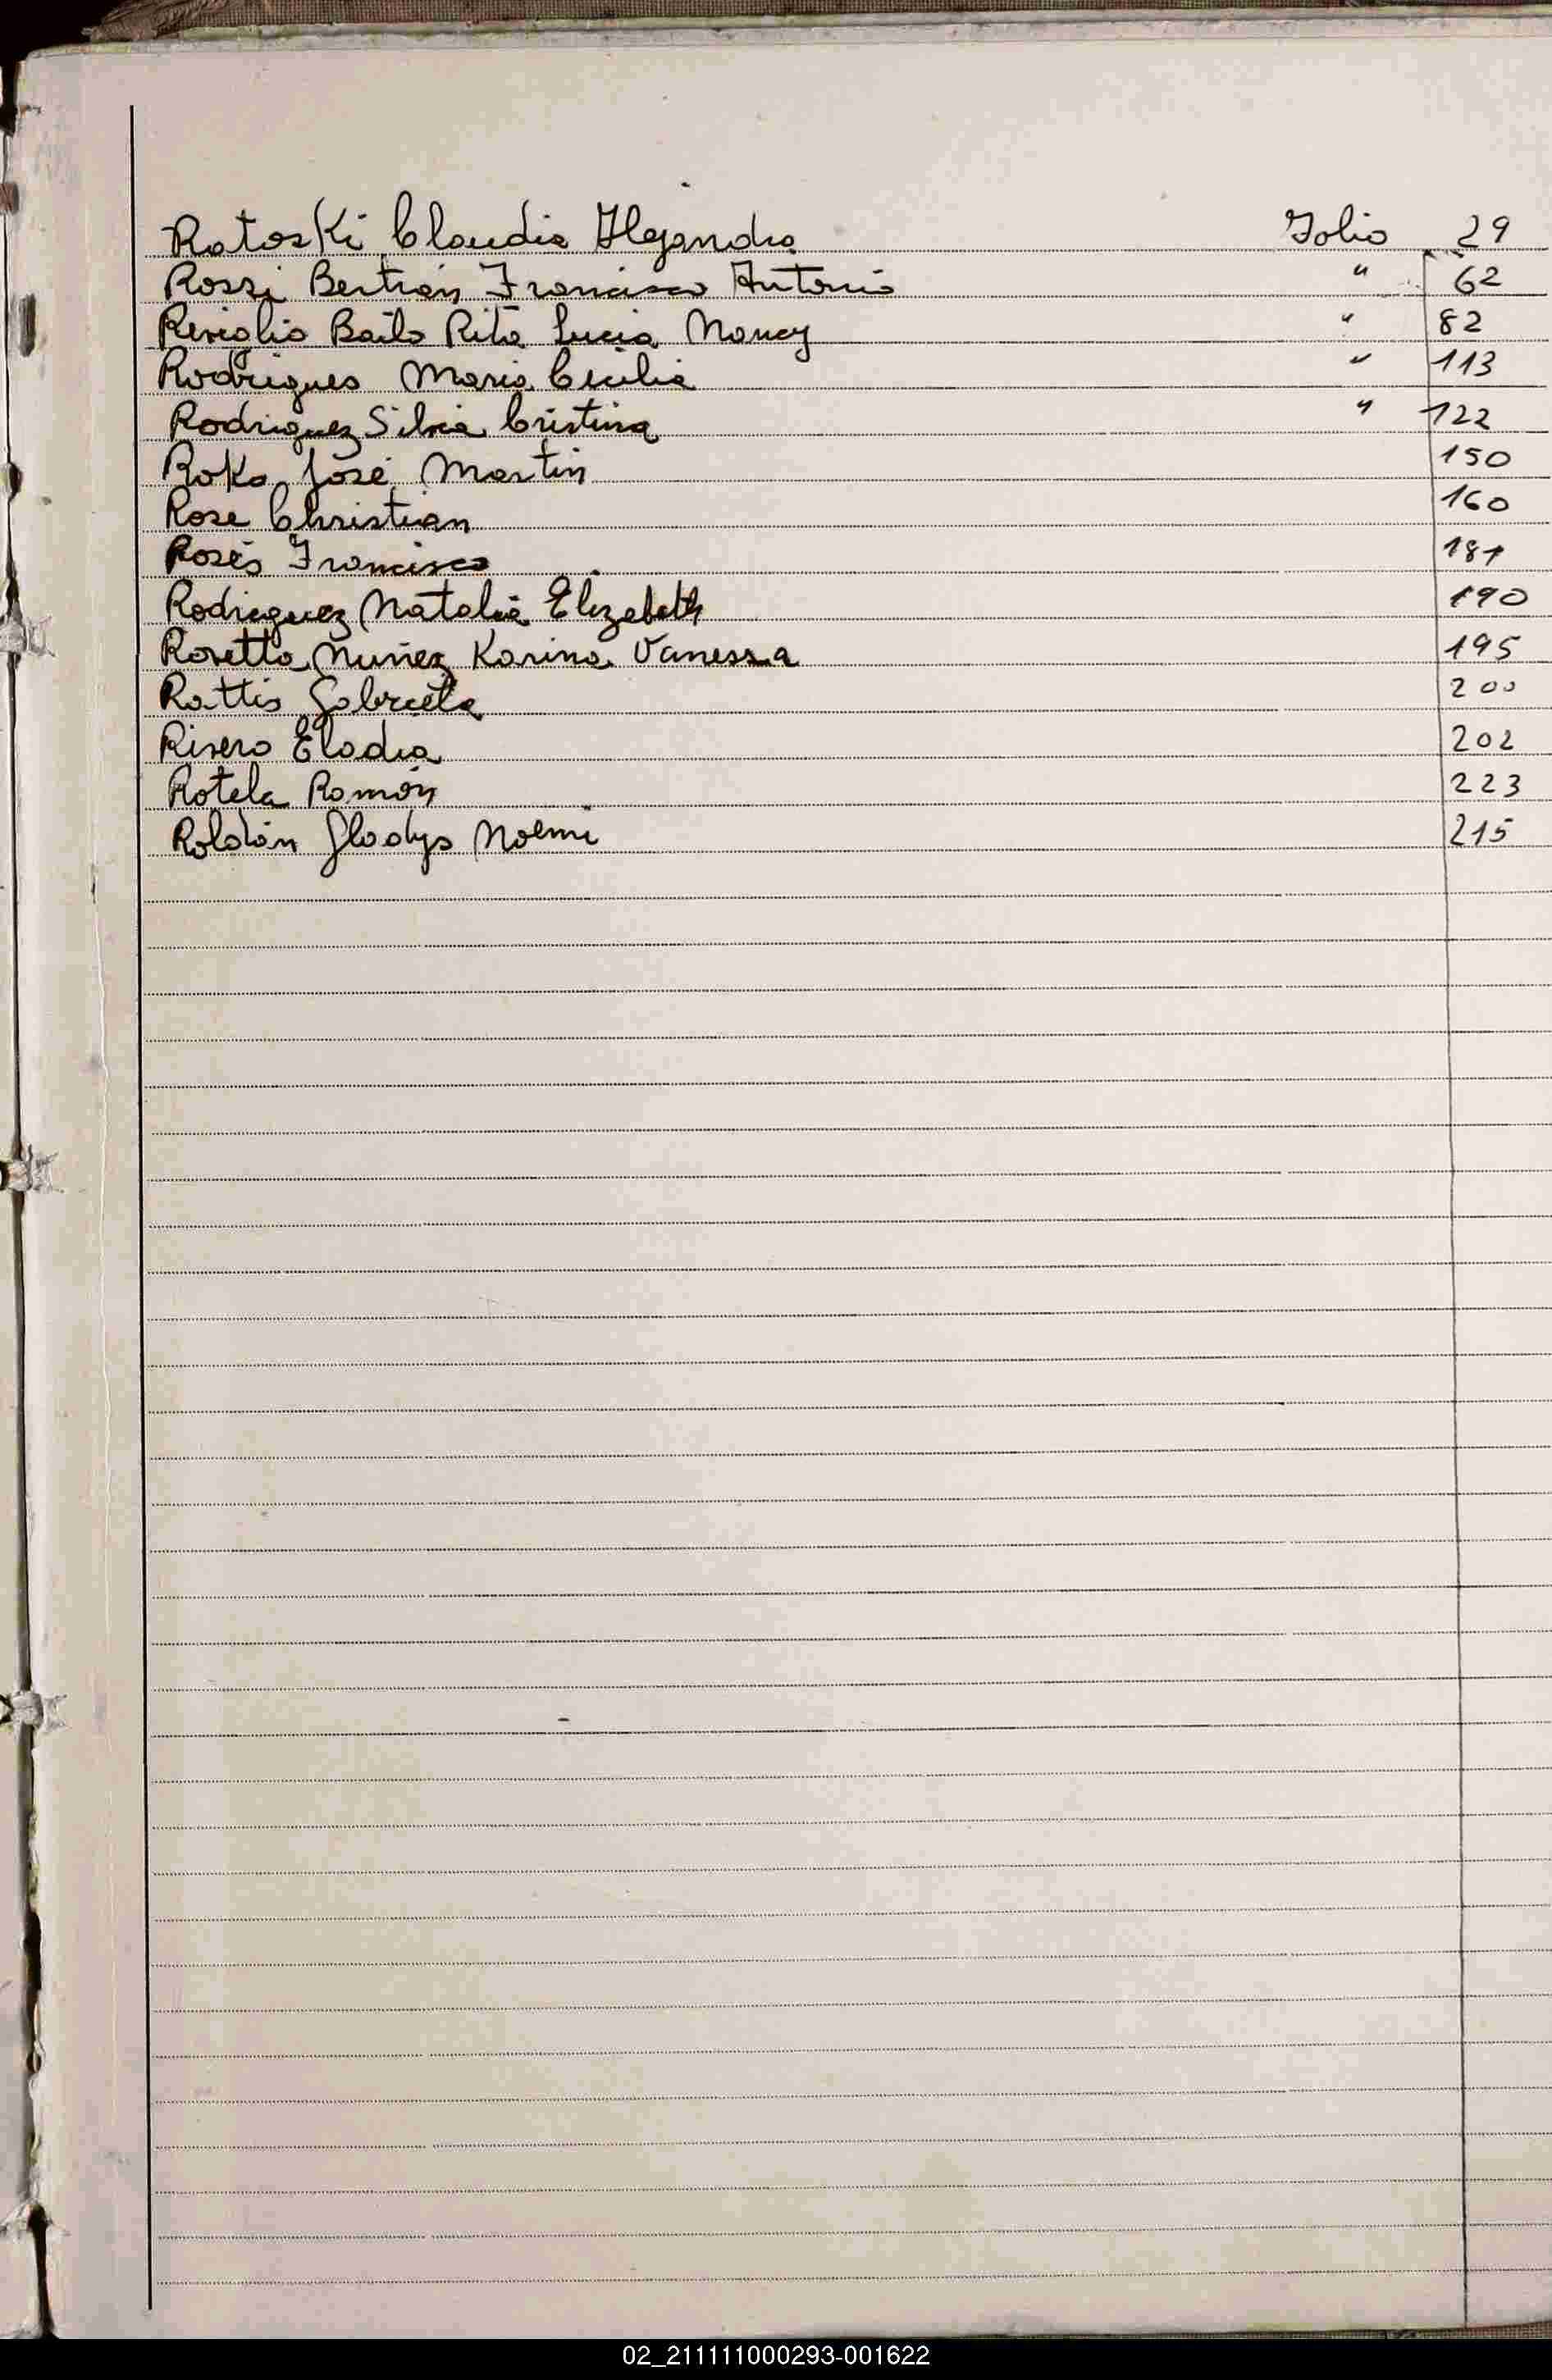 Ratoski Claudia Alejandra Folio 29
Rossi Bertrán Francisco Antonio " 62
Reviglio Bailo Rita Lucia Nancy " 82
Rodrigues Maria Cecilia " 113
Rodriguez Silvia Cristina " 122
Roka José Martin 150
Rose Christian 160
Rosés Francisco 181
Rodrieguez Natalia Elizabeth 190
Rosetto Nuñez Karina Vanessa 195
Rattis Gabriela 200
Rivero Elodia 202
Rotela Ramón 223
Roldán Gladys Noemi 215
02_211111000293-001622